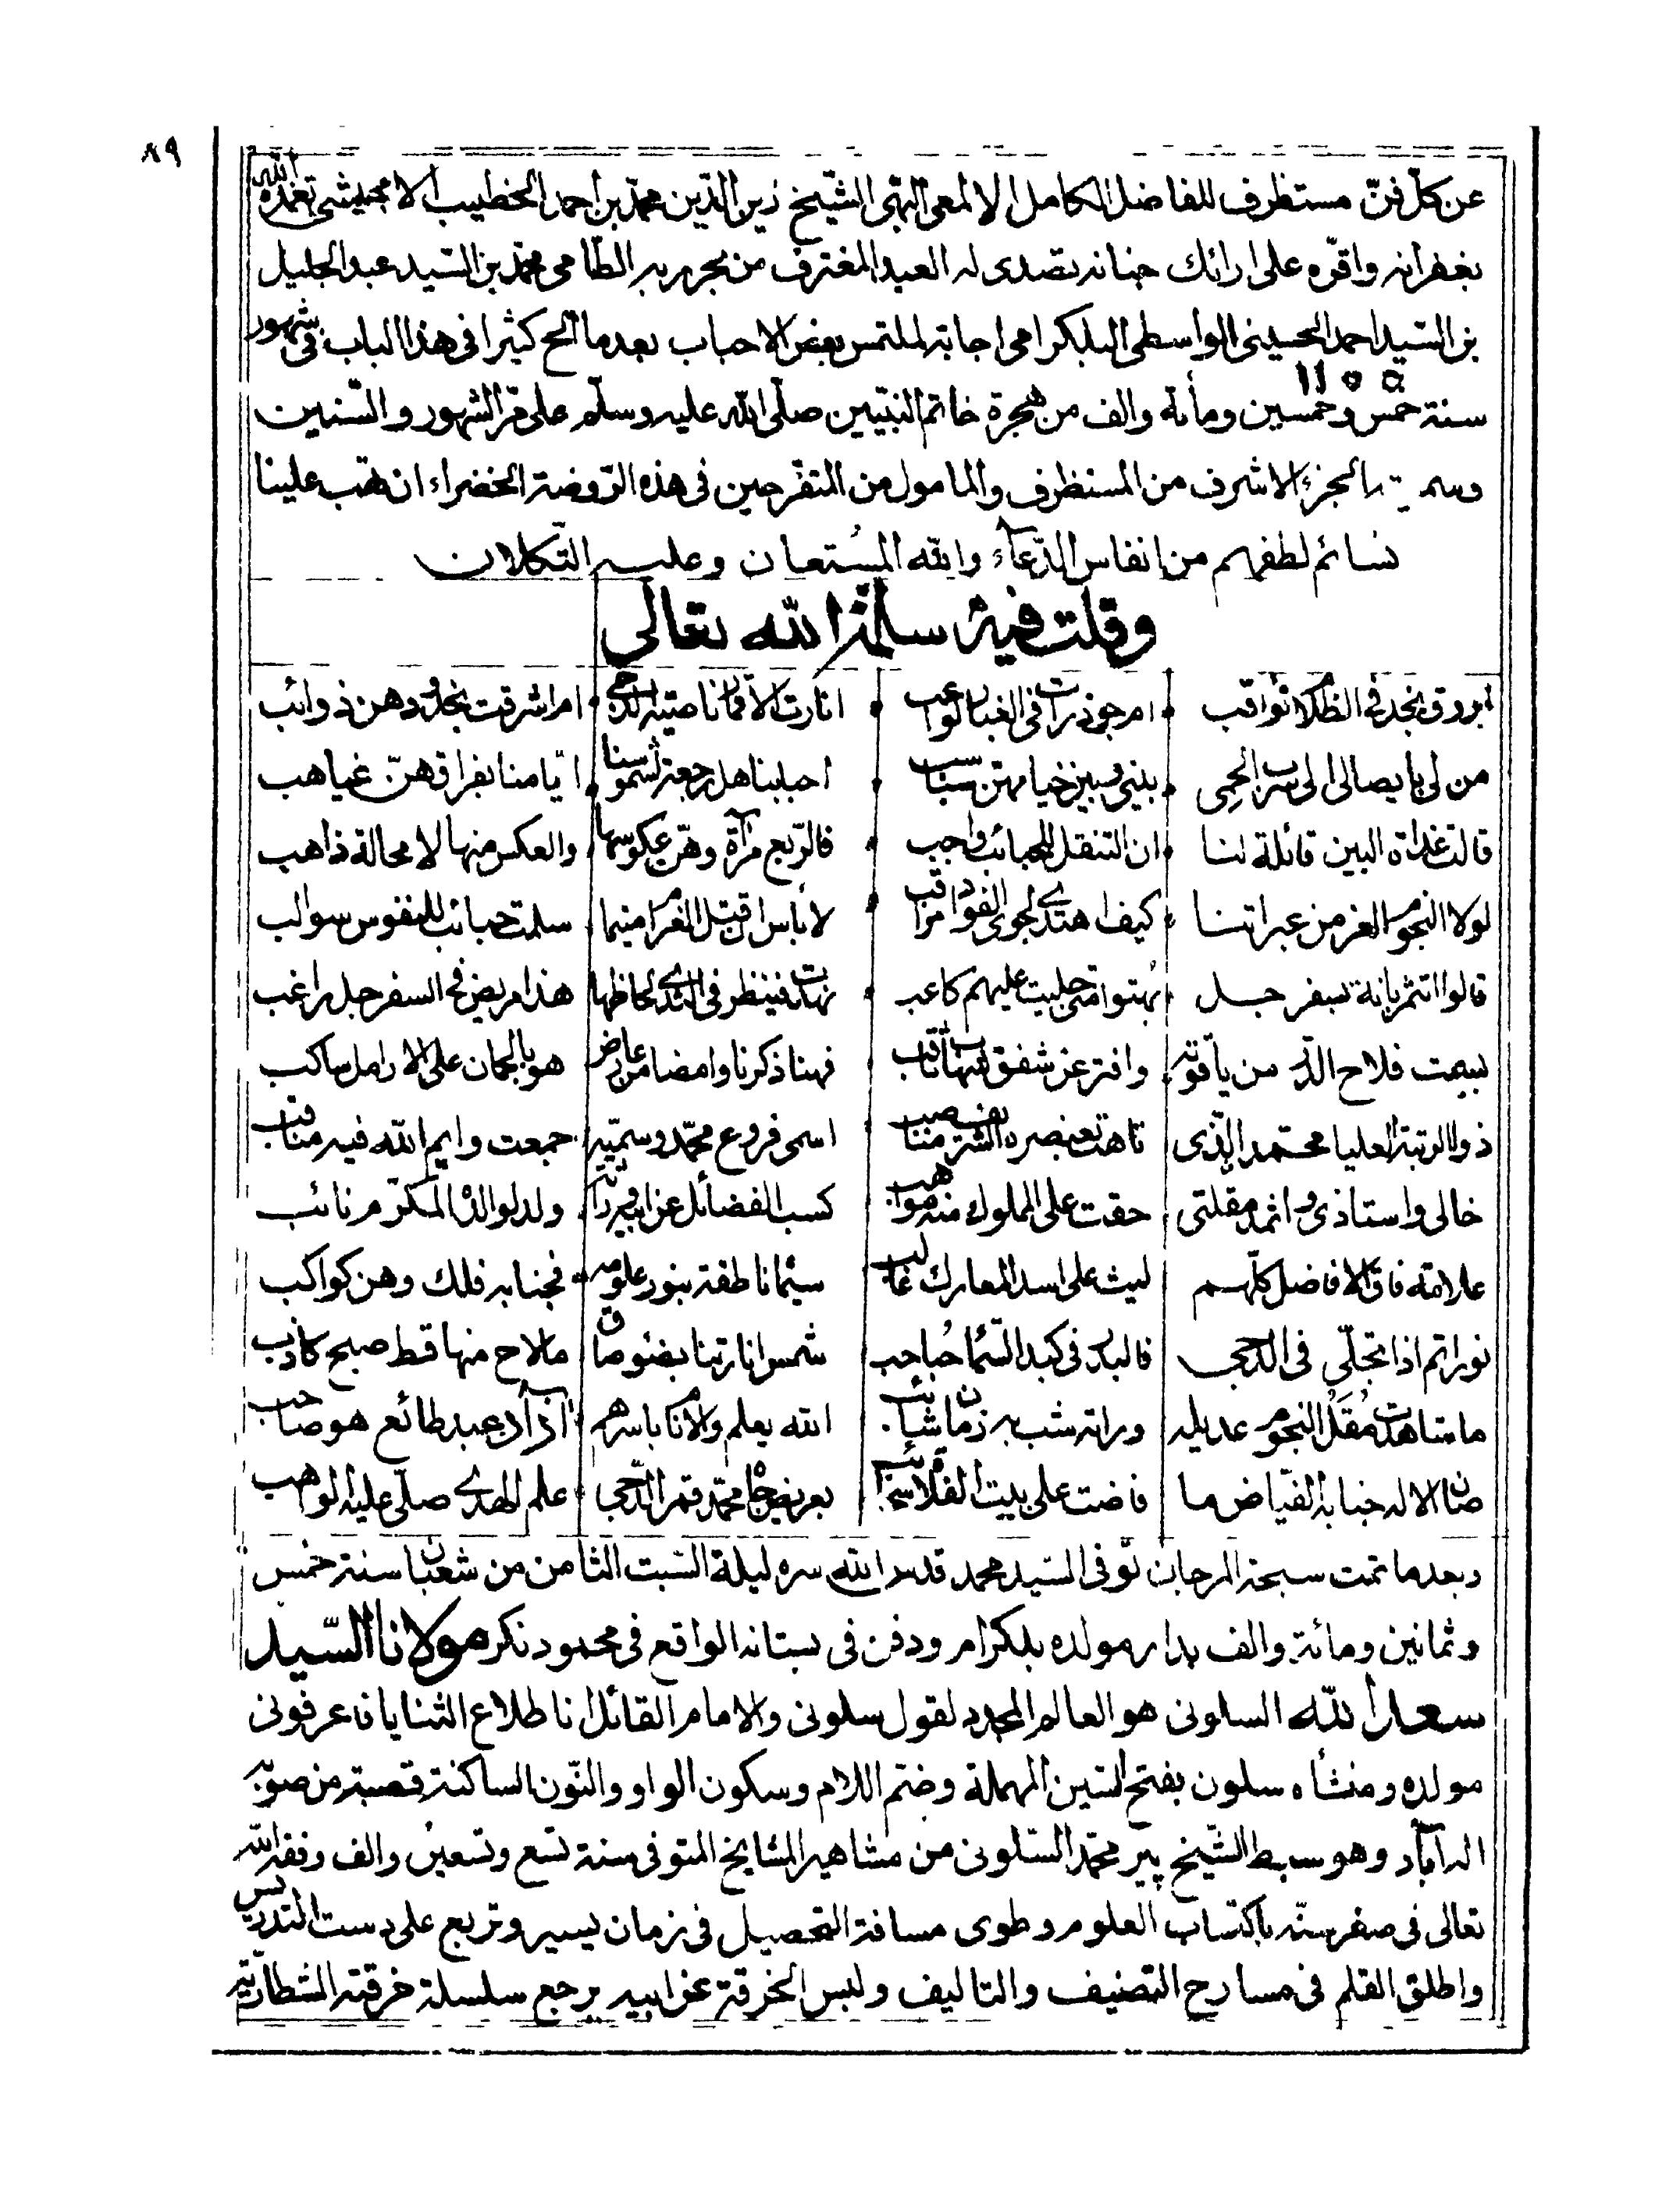 ٨٩
عن كلّ فنّ مستظرف للفاضل الكامل الالمعى البهى الشيخ زين الدّين محمّد بن أحمد الخطيب الابشيهى تغمّده الله
بغفرانه واقرّه على ارائك جنانه تصدى له العبد المغترف من بحر ربه الطّامى محمّد بن السّيد عبد الجليل
بن السّيد احمد الحسينى الواسطى البلكرامى اجابة لملتمس بعض الاحباب بعد ما الح كثيرا فى هذا الباب فى شهور
١١٥٥
سنة خمس وخمسين ومأة والف من هجرة خاتم النبيّين صلّى الله عليه وسلّم على مرّ الشهور والسّنين
بالجزء الاشرف من المستظرف والمامول من المتفرّجين فى هذه الرّوضة الخضراء ان تهب علينا
نسائم لطفهم من انفاس الدّعاء والله المستعان وعليه التّكلان
وقلت فيه سلّمه الله تعالى
ابروق نجد فى الظلام ثواقب ام جوذرات فى الغياب لواعب انارت الآفاق ناصية الدجى ام اشرقت بخدود هن ذوائب
من لى بايصالى الى سرب الحمى بينى وبين خيامهن سباسب احبابنا هل رجعة لشموسنا ايّامنا بفراقهنّ غياهب
قالت غداة البين قائلة لنا ان التنقل للحبائب واجب فالرّبع مرآة وهنّ عكوسها والعكس منها لا محالة ذاهب
لولا النجوم الغر من عبراتنا كيف اهتدى لجوى الفؤاد مراقب لا باس ان قتل الغرام متيما سلمت حبائب للنفوس سوالب
قالوا اتثمر بانة بسفرجل بهتوا متى جليت عليهم كاعب نهدت فينظر فى الثدى لحاظها هذا مريض فى السفرجل راغب
بسمت فلاح الدّر من ياقوته وافتر عن شفق لنهاتاقب فهنا ذكرنا وامضا من عارض هو بالجمان على الارامل ساكب
ذو الرتبة العليا محمّد الّذى تاهت بعنصره الشريف مناصب اسمى فروع محمّد وسميّه جمعت وايم الله فيه مناقب
خالى واستاذى واثمد مقلتى حقت على الملوك منه مواهب كسب الفضائل عن ابيه وراثة ولد لوالده المكرّم نائب
علامة فاق الافاضل كلّهم ليث على اسد المعارك غالب سيّما ناطفة بنور علومه فجنابه فلك وهن كواكب
نور اتم اذا تجلّى فى الدجى فالبدر فى كبد السّما حباحب شمس انارتنا بضوء صادق ما لاح منها قط صبح كاذب
ما شاهدت مقل النجوم عديله وراته شب به زمان شائب الله يعلم والانام باسرهم آزاد عبد طائع هو صاحب
صان الاله جنابه الفيّاض ما فاضت على بيت الفلاة سحائب بعريض جاه محمّد قمر الدّجى علم الهدى صلّى عليه الواهب
وبعدما تمت سبحة المرجان توفى السّيد محمد قدس الله سره ليلة السّبت الثامن من شعبان سنة خمس
وثمانين ومائة والف بدار مولده بلكرام ودفن فى بستانه الواقع فى محمود نكر مولانا السّيد
سعد الله السلونى هو العالم المجدد لقول سلونى والامام القائل انا طلاع الثنايا فاعرفونى
مولده ومنشأه سلون بفتح السّين المهملة وضم اللام وسكون الواو والنّون الساكنة قصبة من صوبة
اله آباد وهو سبط الشّيخ پير محمّد السّلونى من مشاهير المشايخ المتوفى سنة تسع وتسعين والف وفقه الله
تعالى فى صغر سنّه باكتساب العلوم وطوى مسافة التحصيل فى زمان يسير وتربع على دست التدريس
واطلق القلم فى مسارح التصنيف والتاليف ولبس الخرقة عن ابيه يرجع سلسلة خرقته الشطاريّة